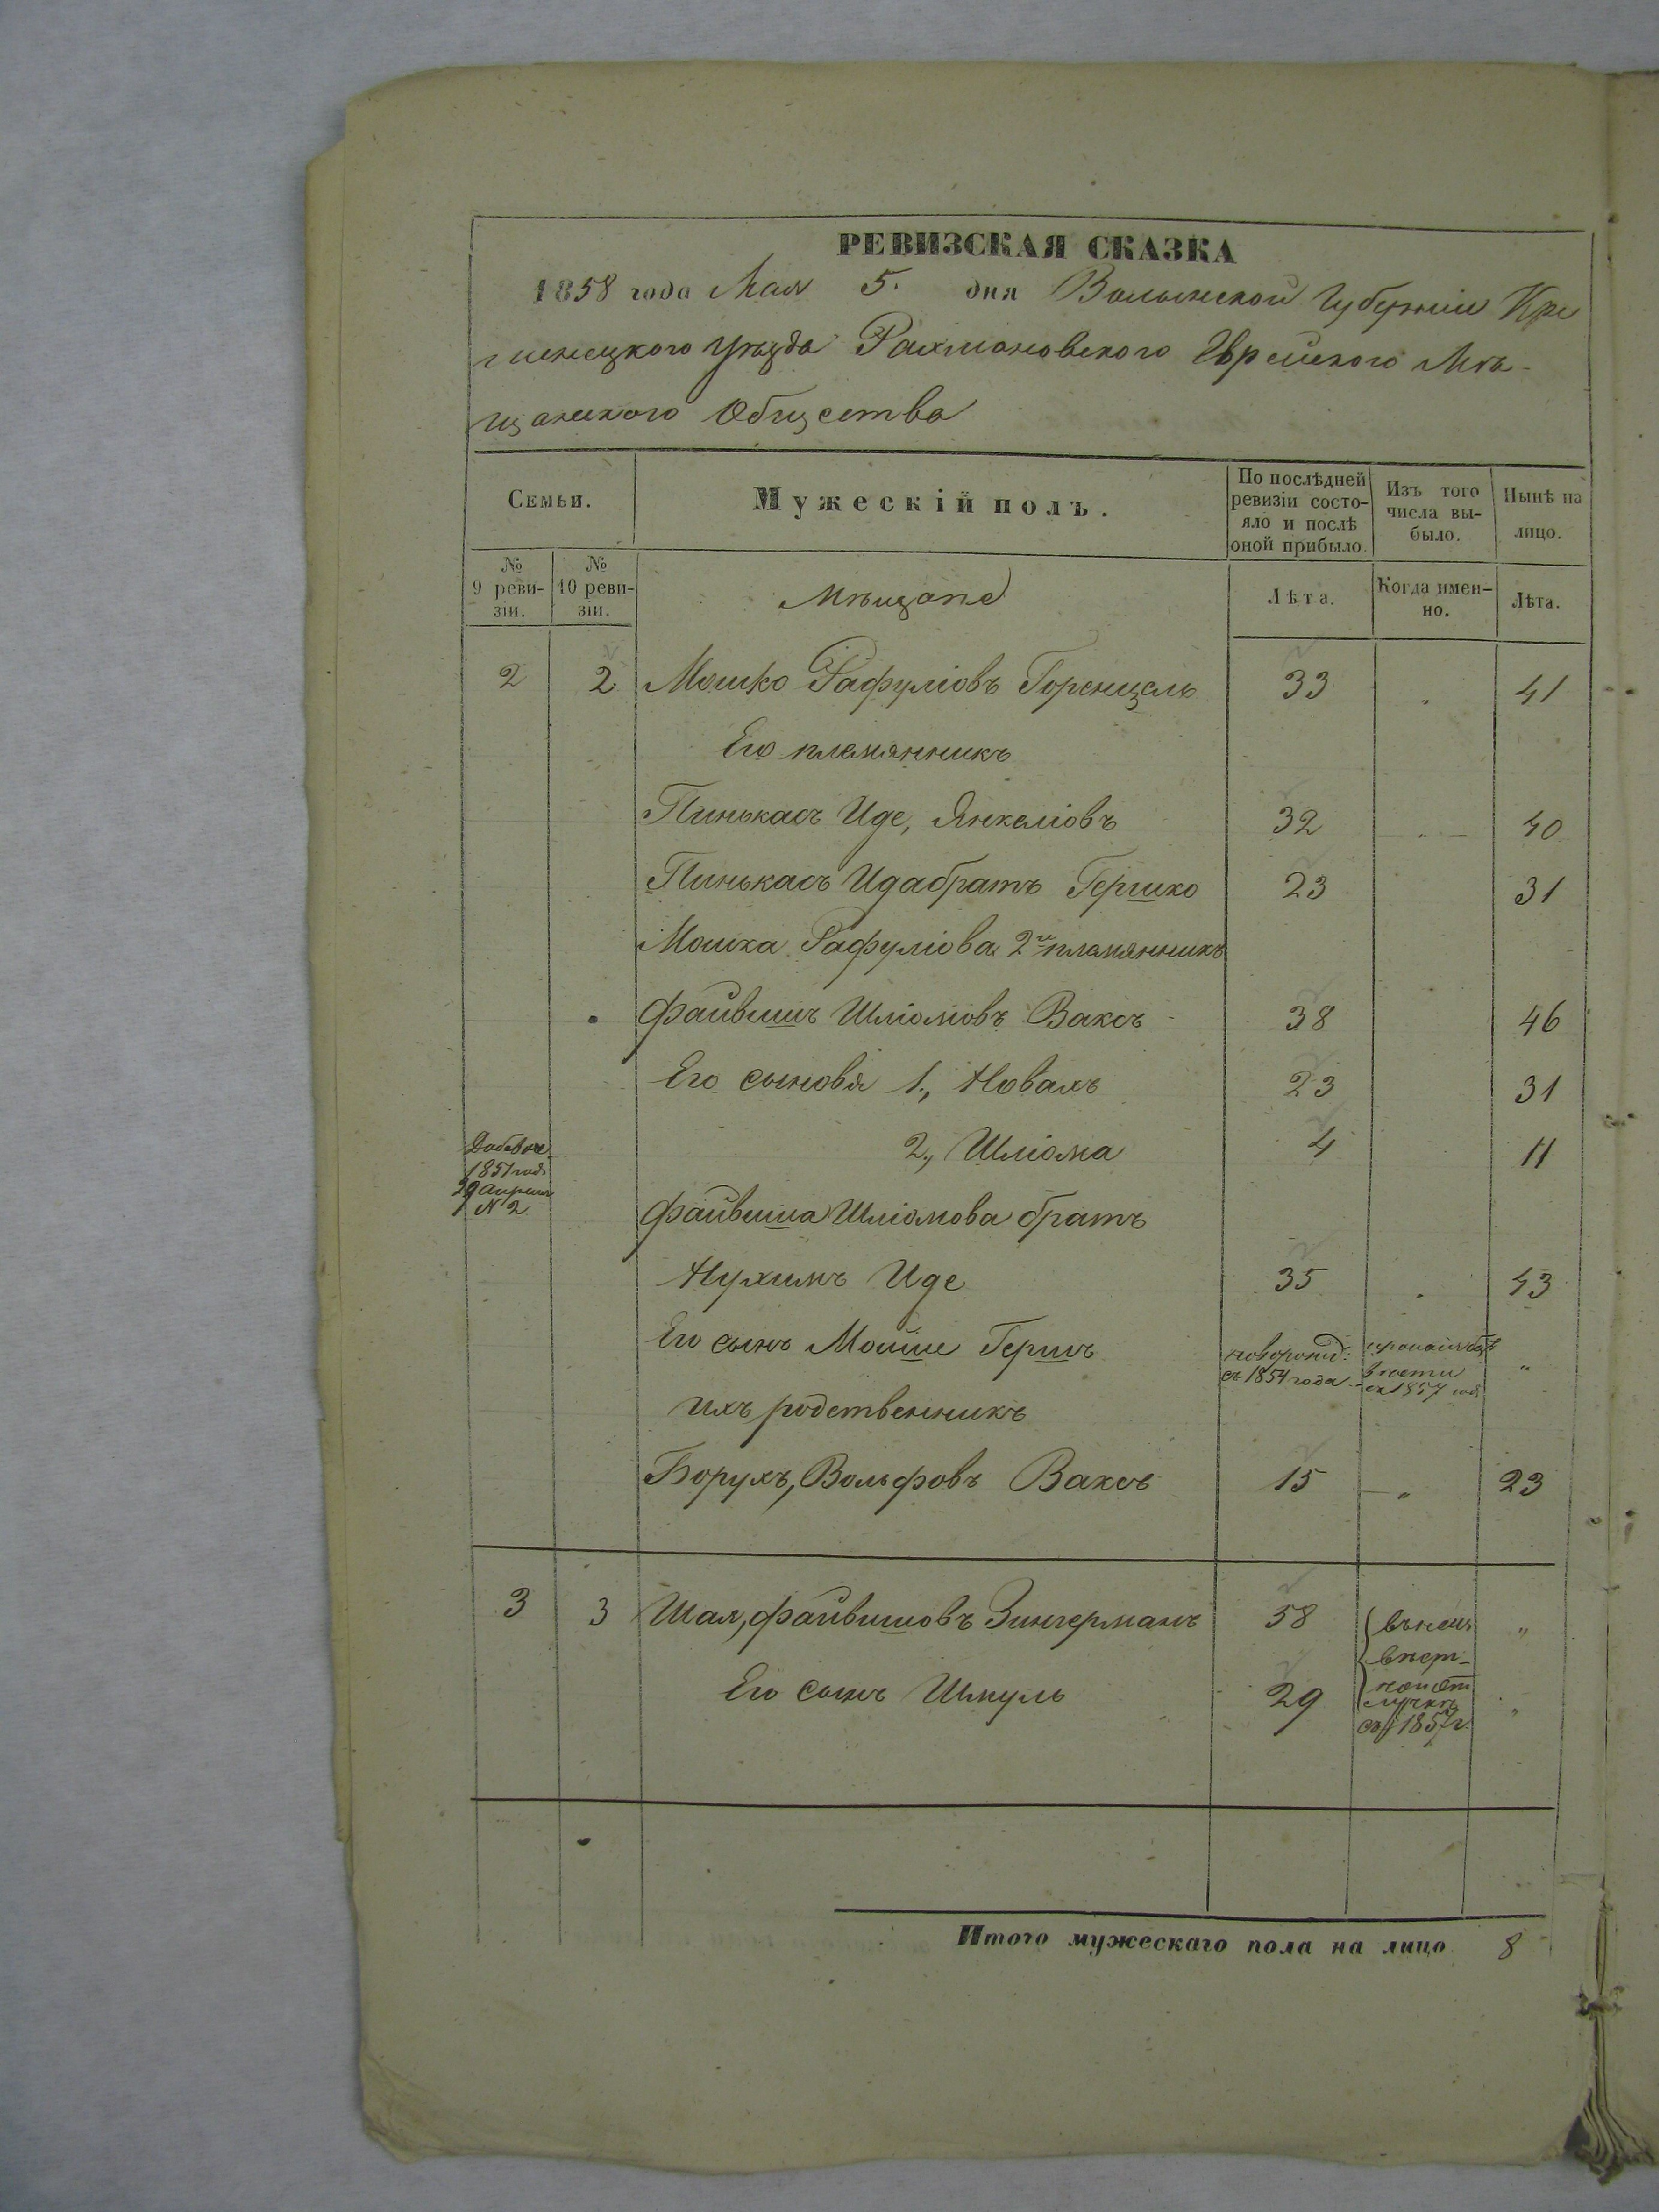 РЕВИЗСКАЯ СКАЗКА
1858 года Мая 5. дня Волынской Губерніи Кре
менецкого уѣзда Рахмановского Еврейского Мѣ-
щанского Общества
Семьи.
Мужескій полъ.
По послѣдней
ревизіи состо-
яло и послѣ
оной прибыло.
Изъ того
числа вы-
было.
Нынѣ на
лицо.
№
9 реви-
зіи.
№
10 реви-
зіи.
Мѣщане
Лѣта.
Когда имен-
но.
Лѣта.
2 2 Мошко Рафуліовъ Горенцель 33 41
Его племянникъ
Пинькасъ Иде, Янкеліовъ 32 40
Пинькасъ Ида братъ Гершко 23 31
Мошка Рафуліова 2й племянникъ
Файвишъ Шліомовъ Ваксъ 38 46
Его сыновя 1., Новахъ 23 31
2., Шліома 4 11
1851 год
29 Апреля
N 2
Файвиша Шліомова братъ
Нухимъ Иде 35 43
Его сынъ Мойше Гершъ новорожд: "
съ 1854 года
1857 год
ихъ родственникъ
Борухъ, Вольфовъ Ваксъ 15 " 23
3 3 Шая, Файвишовъ Зингерманъ 58 "
Его сынъ Шмуль 29 "
съ 1857 г.
Итого мужескаго пола на лицо 8